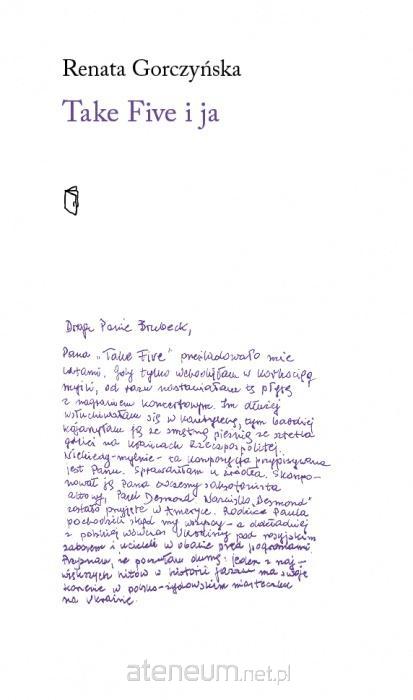 Renata Gorczyńska
Take Five i ja
Drogi Panie Brubeck,
Pana „Take Five” prześladowało mnie
latami. Gdy tylko wchodziłam w
myśli, od razu nastawiałam tę płytę
z nagraniem koncertowym. Im dłużej
wsłuchiwałam się w kantylenę, tym bardziej
kojarzyłam ją ze smętną pieśnią ze sztetla
gdzieś na krańcach Rzeczpospolitej.
Niekiedy - mylnie - ta kompozycja przypisywana
jest Panu. Sprawdziłam u źródła. Skompo-
nował ją Pana ówczesny saksofonista
altowy, Paul Desmond. Nazwisko „Desmond”
zostało przyjęte w Ameryce. Rodzice Paula
pochodzili skąd my wszyscy - a dokładniej
z polskiej wówczas Ukrainy pod rosyjskim
zaborem i uciekli w obawie przed pogromami.
Przyznam, że poczułam dumę: jeden z naj-
większych hitów w historii jazzu ma swoje
korzenie w polsko-żydowskim miasteczku
na Ukrainie.
ateneum.net.pl